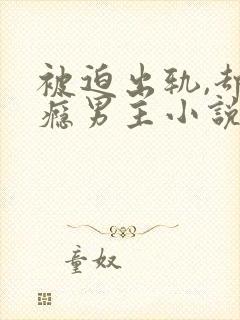 被迫出轨,却
瘾男主小说
童奴